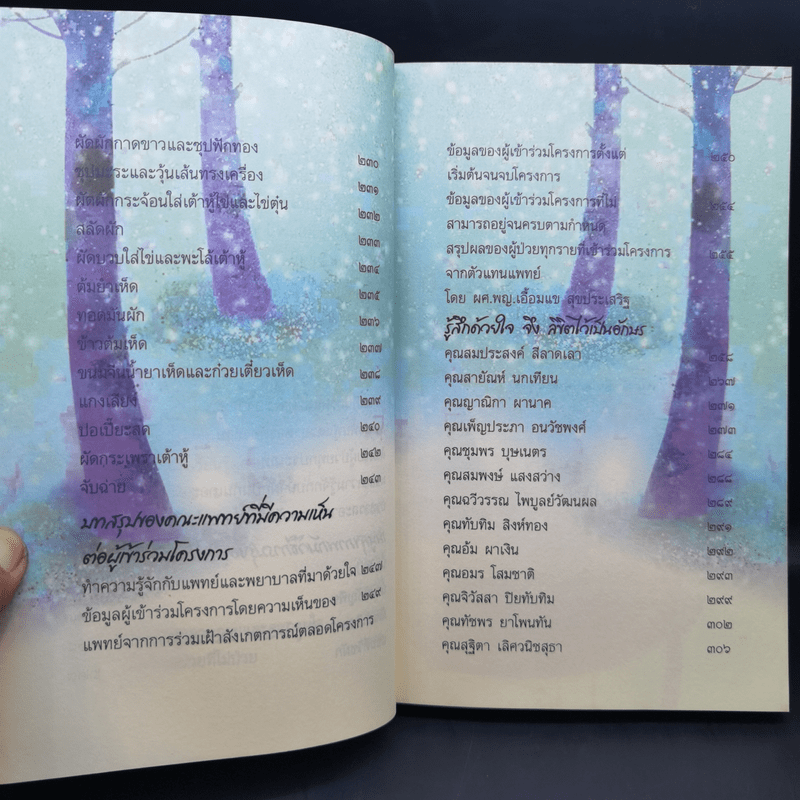 ผัดผักกาดขาวและซุปฟักทอง ๒๓๐
ซุปมะระและวุ้นเส้นทรงเครื่อง ๒๓๑
ผัดผักกระจ้อนใส่เต้าหู้ไข่และไข่ตุ๋น ๒๓๒
สลัดผัก ๒๓๓
ผัดบวบใส่ไข่และพะโล้เต้าหู้ ๒๓๔
ต้มยำเห็ด ๒๓๕
ทอดมันผัก ๒๓๖
ข้าวต้มเห็ด ๒๓๗
ขนมจีนน้ำยาเห็ดและก๋วยเตี๋ยวเห็ด ๒๓๘
แกงเลียง ๒๓๙
ปอเปี๊ยะสด ๒๔๐
ผัดกระเพราเต้าหู้ ๒๔๒
จับฉ่าย ๒๔๓
บทสรุปของคณะแพทย์ที่มีความเห็น
ต่อผู้เข้าร่วมโครงการ
ทำความรู้จักกับแพทย์และพยาบาลที่มาด้วยใจ ๒๔๗
ข้อมูลผู้เข้าร่วมโครงการโดยความเห็นของ ๒๔๙
แพทย์จากการร่วมเฝ้าสังเกตการณ์ตลอดโครงการ
ข้อมูลของผู้เข้าร่วมโครงการตั้งแต่ ๒๕๐
เริ่มต้นจนจบโครงการ
ข้อมูลของผู้เข้าร่วมโครงการที่ไม่ ๒๕๔
สามารถอยู่จนครบตามกำหนด
สรุปผลของผู้ป่วยทุกรายที่เข้าร่วมโครงการ ๒๕๕
จากตัวแทนแพทย์
โดย ผศ.พญ.เอื้อมแข สุขประเสริฐ
รู้สึกด้วยใจ จึง ลิขิตไว้เป็นอักษร
คุณสมประสงค์ สีลาดเลา ๒๕๘
คุณสายัณห์ นกเทียน ๒๖๗
คุณญาณิกา ผานาค ๒๗๑
คุณเพ็ญประภา อนวัชพงศ์ ๒๗๓
คุณชุมพร บุษเนตร ๒๘๔
คุณสมพงษ์ แสงสว่าง ๒๘๘
คุณฉวีวรรณ ไพบูลย์วัฒนผล ๒๘๙
คุณทับทิม สิงห์ทอง ๒๙๑
คุณอ้ม ผาเงิน ๒๙๒
คุณอมร โสมชาติ ๒๙๓
คุณจิวัสสา ปิยทับทิม ๒๙๙
คุณทัชพร ยาโพนทัน ๓๐๒
คุณสุฐิตา เลิศวนิชสุธา ๓๐๖